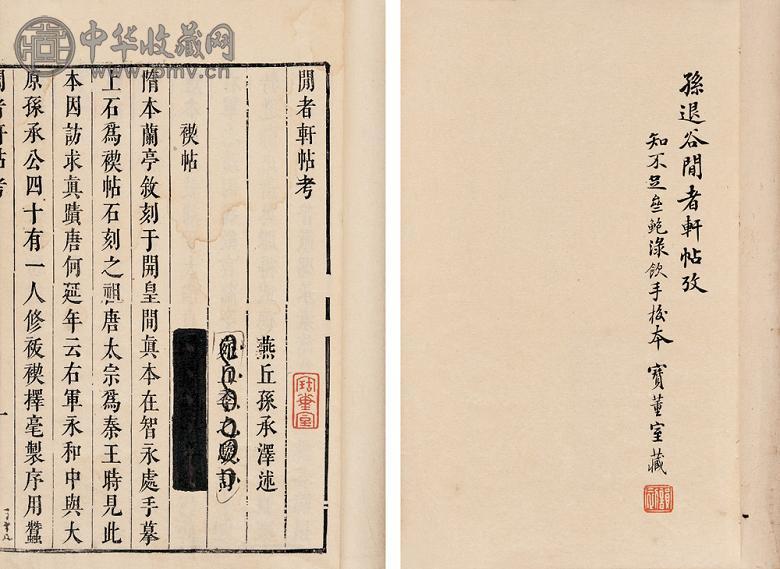 中华收藏网
www.omv.cn
孫退谷閒者軒帖攷
知不足齋鮑渌飲手校本 寳董室藏
閒者軒帖考
燕丘孫承澤述
禊帖
隋本蘭亭敘刻于開皇間真本在智永處手摹
上石爲禊帖石刻之祖唐太宗爲秦王時見此
本因訪求真蹟唐何延年云右軍永和中與大
原孫承公四十有一人修祓禊擇毫製序用蠶
閒者軒帖考
一